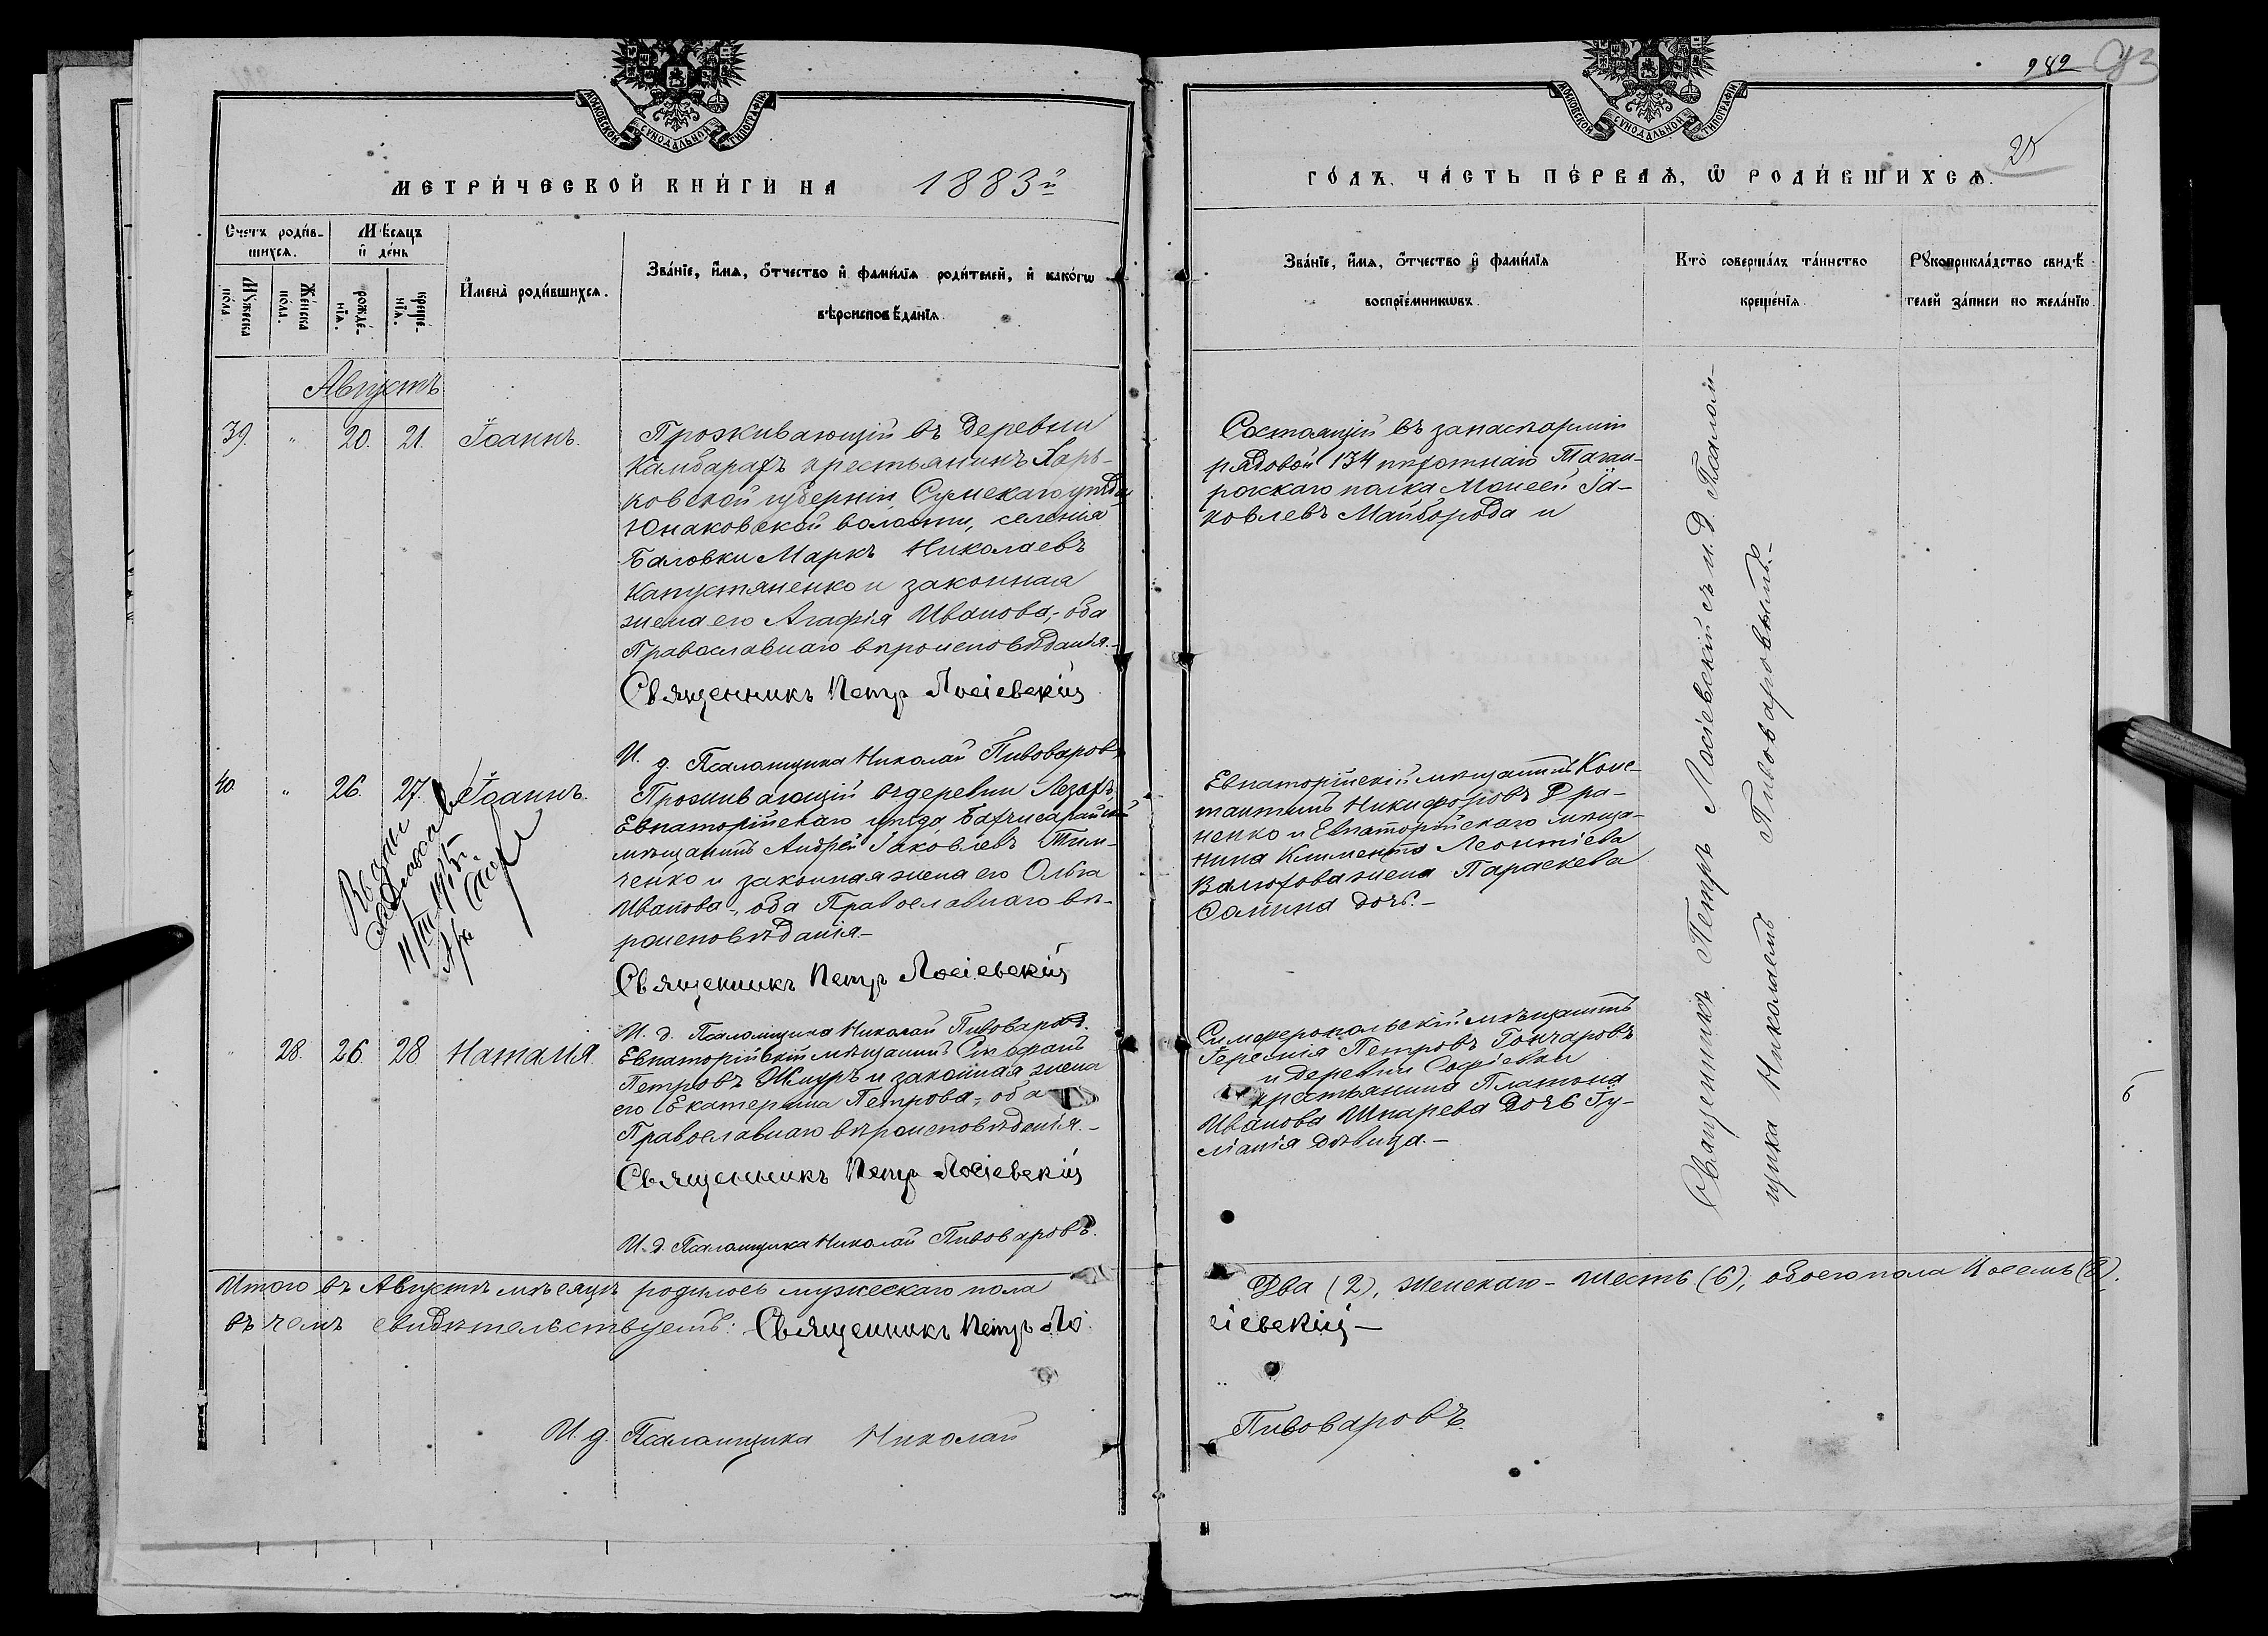 МОСКОВСКОЙ СѴНОДАЛЬНОЙ ТИПОГРАФІИ
МЕТРИ́ЧЕСКОЙ КНИ́ГИ НА 1883й
Счетъ роди́в-
шихся.
Мѣсяцъ
и де́нь
Мꙋ́жеска
по́ла.
Же́нска
по́ла.
рожде́-
нїя.
креще́-
нїя.
Имена̀ роди́вшихся.
Зва́нїе, и́мя, о́тчество и фами́лїя роди́телей, и како́гѡ
вѣроисповѣ́данїя.
Августъ
39. " 20. 21. Іоаннъ.
Проживающій въ деревни
Камбарахъ крестьянинъ Харь-
ковской губерніи, Сумскаго уѣзда
Юнаковской волости, селенія
Баловки Маркъ Николаевъ
Капустяненко и законная
жена его Агафія Иванова,- оба
Православнаго вѣроисповѣданія.-
Священникъ Петръ Лосіевскій
И. д. Псаломщика Николай Пивоваровъ
40. " 26. 27. Іоаннъ.
Проживающій въ деревни Лезахъ
Евпаторійскаго уѣзда, Бахчисарайскій
мѣщанинъ Андрей Іаковлевъ Тим-
ченко и законная жена его Ольга
Иванова-, оба Православнаго вѣ-
роисповѣданія.-
Священникъ Петръ Лосіевскій
И. д. Псаломщика Николай Пивоваровъ.
" 28. 26. 28 Наталія.
Евпаторійскій мѣщанинъ Стефанъ
Петровъ Жмуръ и законная жена
его Екатерина Петрова-, оба
Православнаго вѣроисповѣданія.-
Священникъ Петръ Лосіевскій
И. д. Псаломщика Николай Пивоваровъ.
Итого въ Августѣ мѣсяцѣ родилось мужескаго пола
въ чемъ свидѣтельствуемъ: Священникъ Петръ Ло-
И. д. Псаломщика Николай
982
25
МОСКОВСКОЙ СѴНОДАЛЬНОЙ ТИПОГРАФІИ
ГО́ДЪ, ЧА́СТЬ ПЕ́РВАЯ, Ѡ РОДИ́ВШИХСЯ.
Зва́нїе, и́мя, о́тчество и фами́лїя
воспрїе́мникѡвъ.
Кто̀ соверша́лъ та́инство
креще́нїя.
Рꙋкоприкла́дство свидѣ́-
телей за́писи по жела́нїю.
Состоящій въ запаснарміи
рядовой 134 пѣхотнаго Таган-
рогскаго полка Моисей Іа-
ковлевъ Майборода и
Евпаторійскій мѣщанинъ Конс-
тантинъ Никифоровъ Дра-
ненко и Евпаторійскаго мѣща-
нина Климента Леонтіева
Валюхова жена Параскева
Фомина дочь.-
Симферопольскій мѣщанинъ
Іеремія Петровъ Гончаровъ
и деревни Софіевки
крестьянина Платона
Иванова Шкарева дочь Іу-
ліанія дѣвица.-
Священникъ Петръ Лосіевскій съ и. д. Псалом-
щика Николаемъ Пивоваровымъ.-
Два (2), женскаго - шесть (6), обоего пола восемь (8).
сіевскій -
Пивоваровъ.